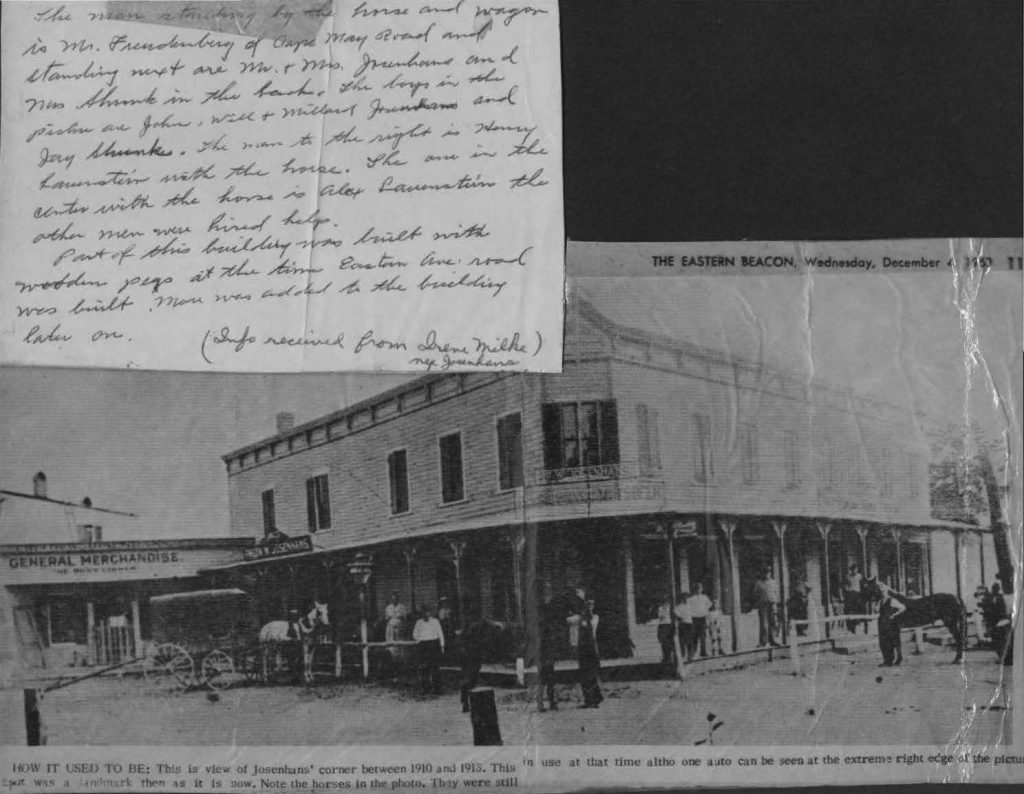 The man standing by the horse and wagon
is Mr. Freudenberg of Cape May Road and
standing next are Mr. + Mrs. Josenhans and
Mrs Shunk in the back. The boys in the
picture are John, Will + Millard Josenhans and
Jay Shunk. The man to the right is Henry
Lauenstein with the horse. The one in the
center with the horse is Alex Lauenstein the
other men were hired help.
Part of this building was built with
wooden pegs at the time Eastern Ave. road
was built. More was added to the building
later on.
(Info received from Irene Milke)
nee Josenhans
THE EASTERN BEACON, Wednesday, December 4, 1963 11
GENERAL MERCHANDISE.
JOSENHANS
HOW IT USED TO BE: This is view of Josenhans' corner between 1910 and 1913. This
spot was a landmark then as it is now. Note the horses in the photo. They were still
in use at that time altho one auto can be seen at the extreme right edge of the pictu